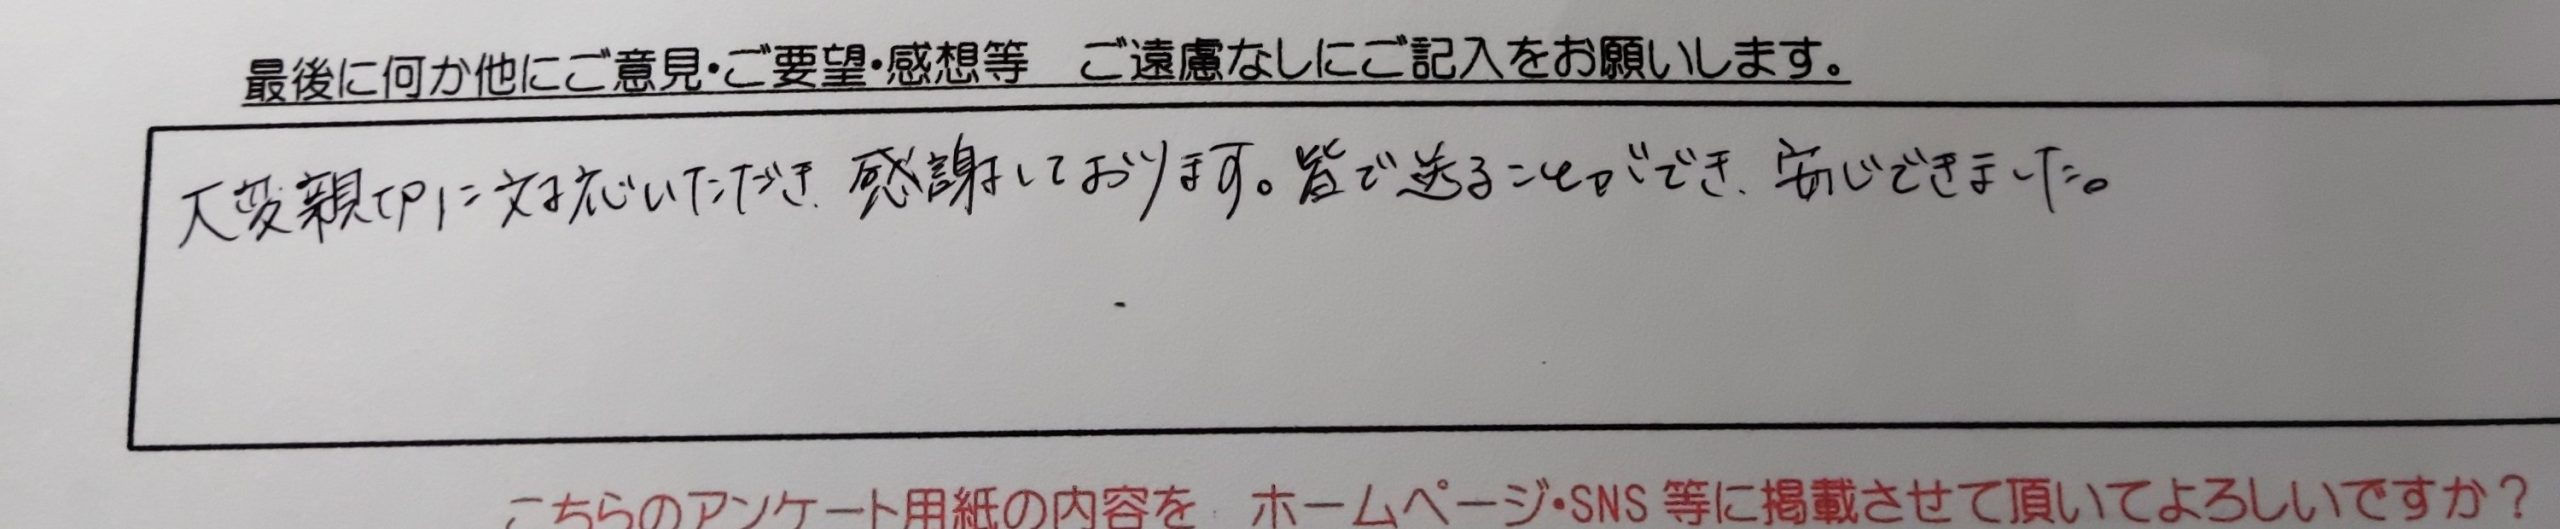 最後に何か他にご意見・ご要望・感想等　ご遠慮なしにご記入をお願いします。
大変親切に対応いただき、感謝しております。皆で送ることができ、安心できました。
こちらのアンケート用紙の内容を　ホームページ・SNS 等に掲載させて頂いてよろしいですか？